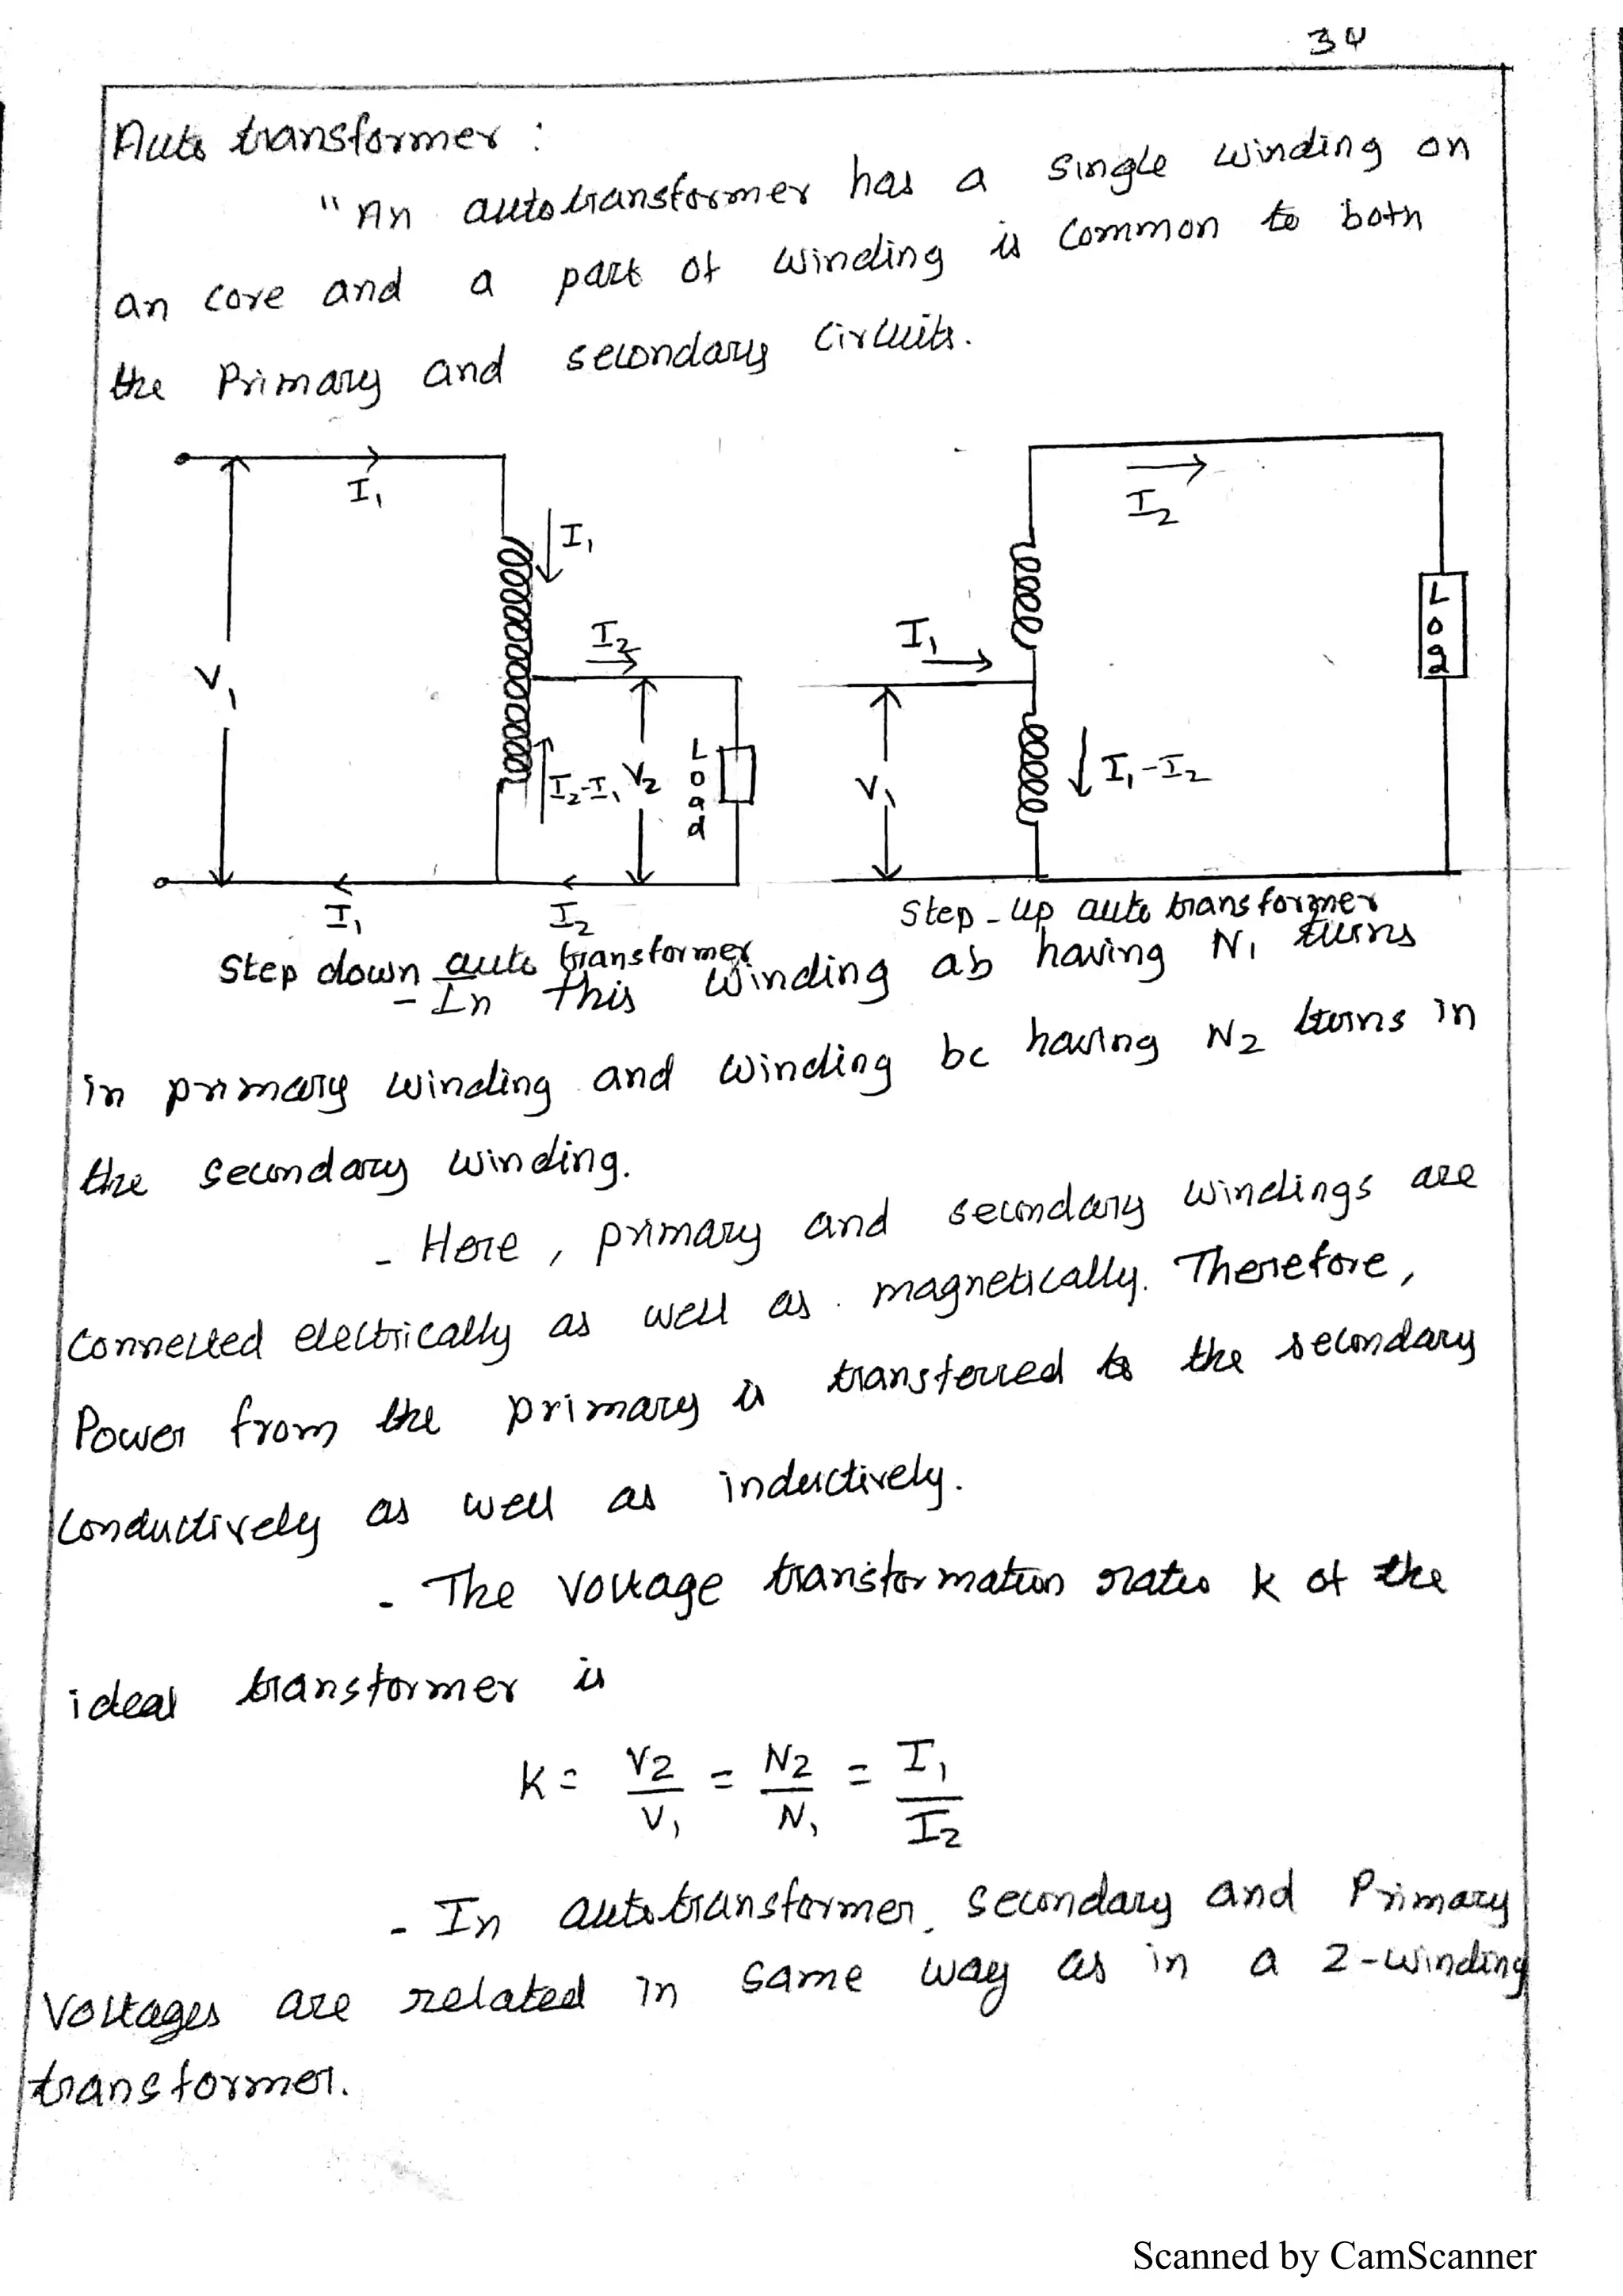 34
Auto transformer :
"An autotransformer has a single winding on
an core and a part of winding is common to both
the Primary and secondary circuits.
I1
I1
I2
V1
I2-I1
V2
Load
I1
I2
Step down auto transformer
I2
I1
V1
I1-I2
Load
Step-up auto transformer
- In this winding ab having N1 turns
in primary winding and winding bc having N2 turns in
the secondary winding.
- Here, primary and secondary windings are
connected electrically as well as magnetically. Therefore,
Power from the primary is transferred to the secondary
conductively as well as inductively.
- The voltage transformation ratio k of the
ideal transformer is
K = V2/V1 = N2/N1 = I1/I2
- In autotransformer secondary and Primary
Voltages are related in same way as in a 2-winding
transformer.
Scanned by CamScanner